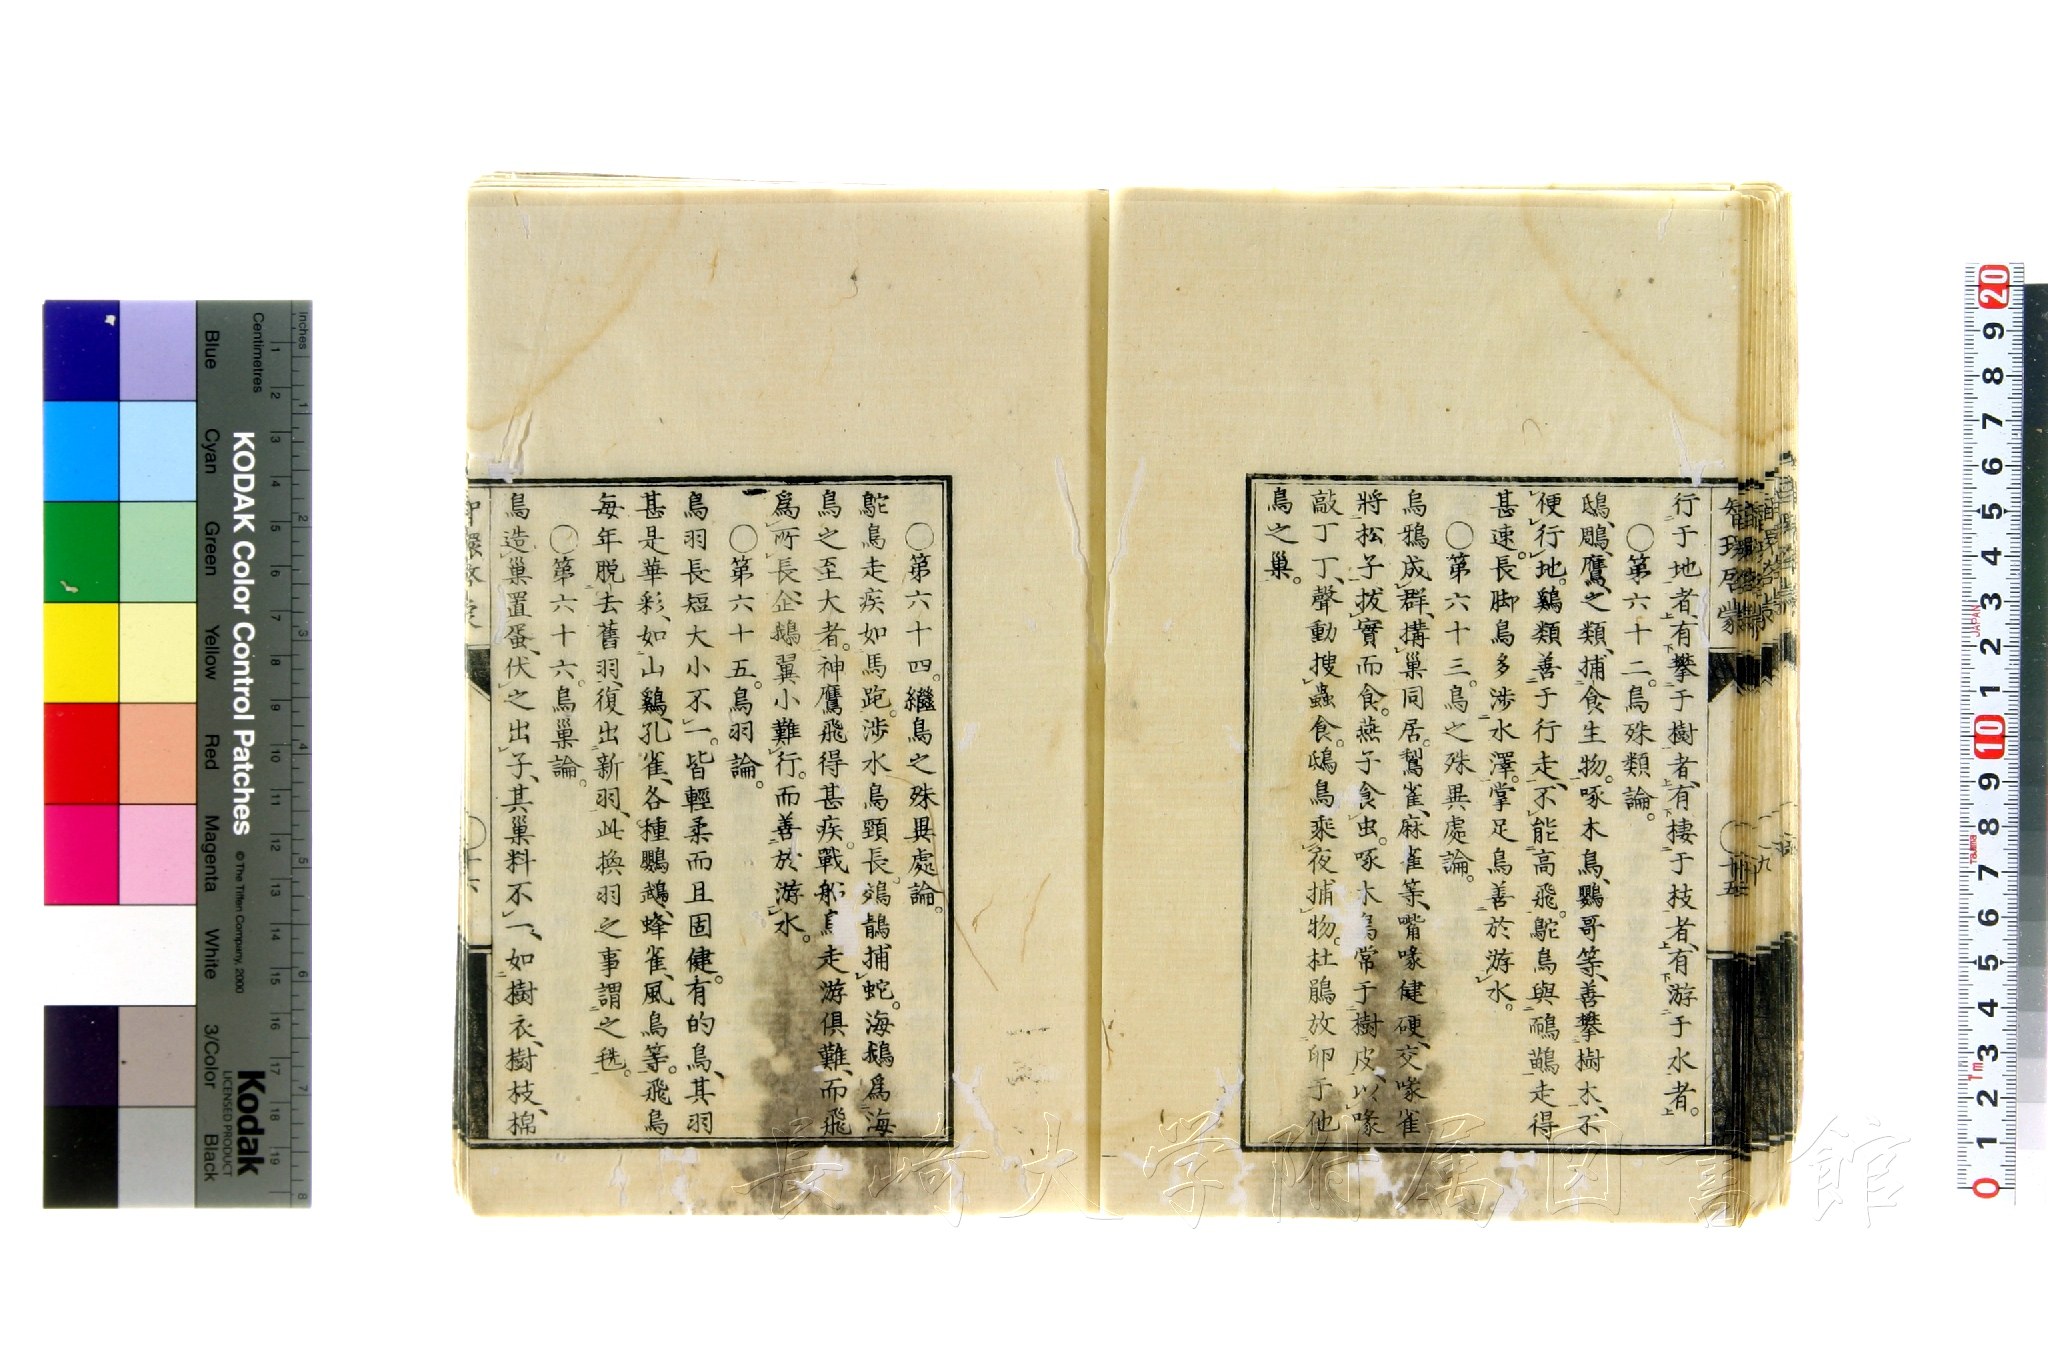 行于地者、有攀于樹者、有棲于枝者、有游于水者。
〇第六十二。鳥殊類論。
鴟、鵰、鷹、之類、捕食生物。啄木鳥、鸚哥等、善攀樹木、不
便行地。鷄類善于行走、不能高飛。鴕鳥與鴯鶓走得
甚速。長脚鳥多渉水澤。掌足鳥善於游水。
〇第六十三。鳥之殊異處論。
烏鴉成群、搆巢同居。鴷雀、麻雀等、嘴喙健硬、交喙雀
將松子拔實而食。燕子食虫。啄木鳥常于樹皮、以喙
敲丁丁、聲動搜蟲食。鴟鳥乘夜捕物。杜鵑放卵于他
鳥之巢。
智環啓蒙
十五
〇第六十四。繼鳥之殊異處論。
鴕鳥走疾如馬跑。渉水鳥頸長。鵁鶄捕蛇。海鵝爲海
鳥之至大者。神鷹飛得甚疾。戰船鳥走游俱難、而飛
爲所長、企鵝翼小難行。而善於游水。
〇第六十五。鳥羽論。
鳥羽長短大小不一。皆輕柔而且固健。有的鳥、其羽
甚是華彩、如山鷄、孔雀、各種鸚鵡、蜂雀、風鳥等。飛鳥
每年脫去舊羽、復出新羽、此換羽之事謂之毨。
〇第六十六。鳥巢論。
鳥造巢置蛋、伏之出子、其巢料不一、如樹衣、樹枝、棉
KODAK Color Control Patches
©The Tiffen Company, 2000
Kodak
LICENSED PRODUCT
Inches
Centimetres
Blue
Cyan
Green
Yellow
Red
Magenta
White
3/Color
Black
長崎大学附属図書館